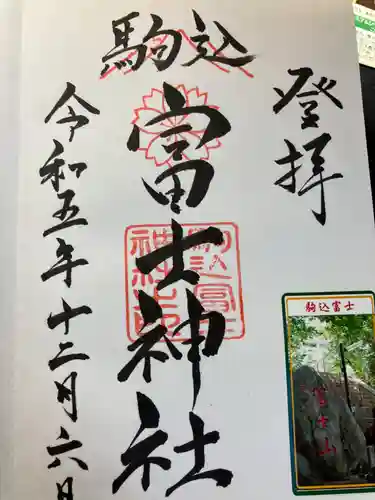 登拝
駒込
富士神社
令和五年十二月六日
駒込富士神社印
駒込富士
富士山